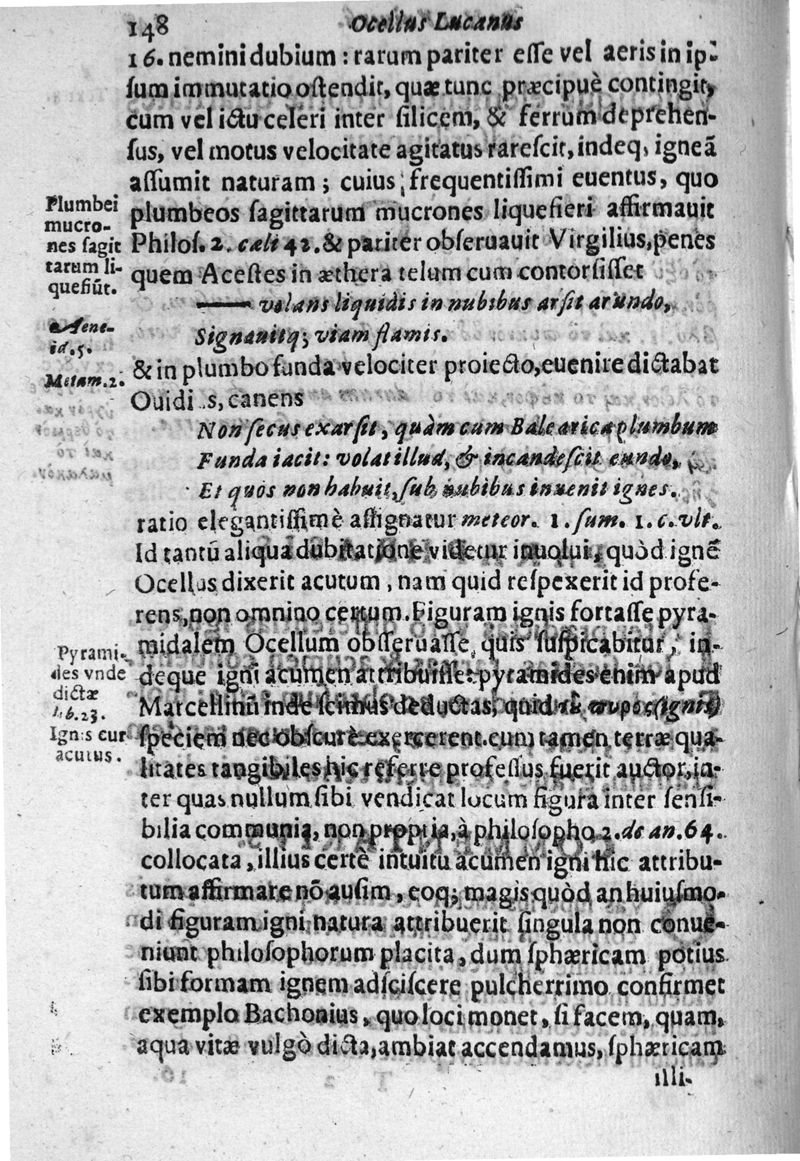 148 Ocellus Lucanus
16. nemini dubium : rarum pariter esse vel aeris in ip-
sum immutatio ostendit, quæ tunc præcipuè contingit,
cum vel ictu celeri inter silicem, & ferrum deprehen-
sus, vel motus velocitate agitatus rarescit, indeq, igneã
assumit naturam ; cuius frequentissimi euentus, quo
Plumbei
mucro-
nes sagit
tarum li-
quefiũt.
plumbeos sagittarum mucrones liquefieri affirmauit
Philos. 2. cæli 42. & pariter obseruauit Virgilius, penes
quem Acestes in æthera telum cum contorsisset
Aene-
id. 5.
—— volans liquidis in nubibus arsit arundo,
Signauitq; viam flamis.
Metam. 2.
& in plumbo funda velociter proiecto, euenire dictabat
Ouidi s, canens
Non secus exarsit, quàm cum Balearica plumbum
Funda iacit: volat illud, & incandescit eundo,
Et quos non habuit, sub nubibus inuenit ignes.
ratio elegantissimè assignatur meteor. 1. sum. 1. c. vlt.
Id tantũ aliqua dubitatione videtur inuolui, quòd ignẽ
Ocellus dixerit acutum, nam quid respexerit id profe-
rens, non omnino certum. Figuram ignis fortasse pyra-
Pyrami-
des vnde
dictæ
lib. 23.
Ignis cur
acutus.
midalem Ocellum obseruasse, quis suspicabitur, in-
deque igni acumen attribuisse: pyramides enim apud
Marcellinũ inde scimus deductas, quid (ignis)
speciem nec obscurè exercerent. cum tamen terræ qua-
litates tangibiles hic referre professus fuerit auctor, in-
ter quas nullum sibi vendicat locum figura inter sensi-
bilia communia, non propria, à philosopho 2. de an. 64.
collocata, illius certè intuitu acumen igni hic attribu-
tum affirmare nõ ausim, eoq; magis quòd an huiusmo-
di figuram igni natura attribuerit singula non conue-
niunt philosophorum placita, dum sphæricam potius
sibi formam ignem adsciscere pulcherrimo confirmet
exemplo Bachonius, quo loci monet, si facem, quam,
aqua vitæ vulgò dicta, ambiat accendamus, sphæricam
illi-